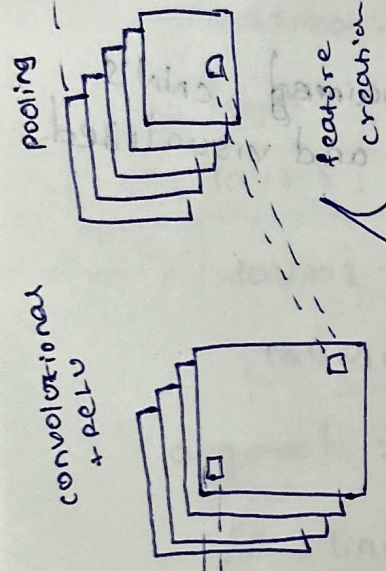 convolutional
+ RELU
pooling
feature
creation